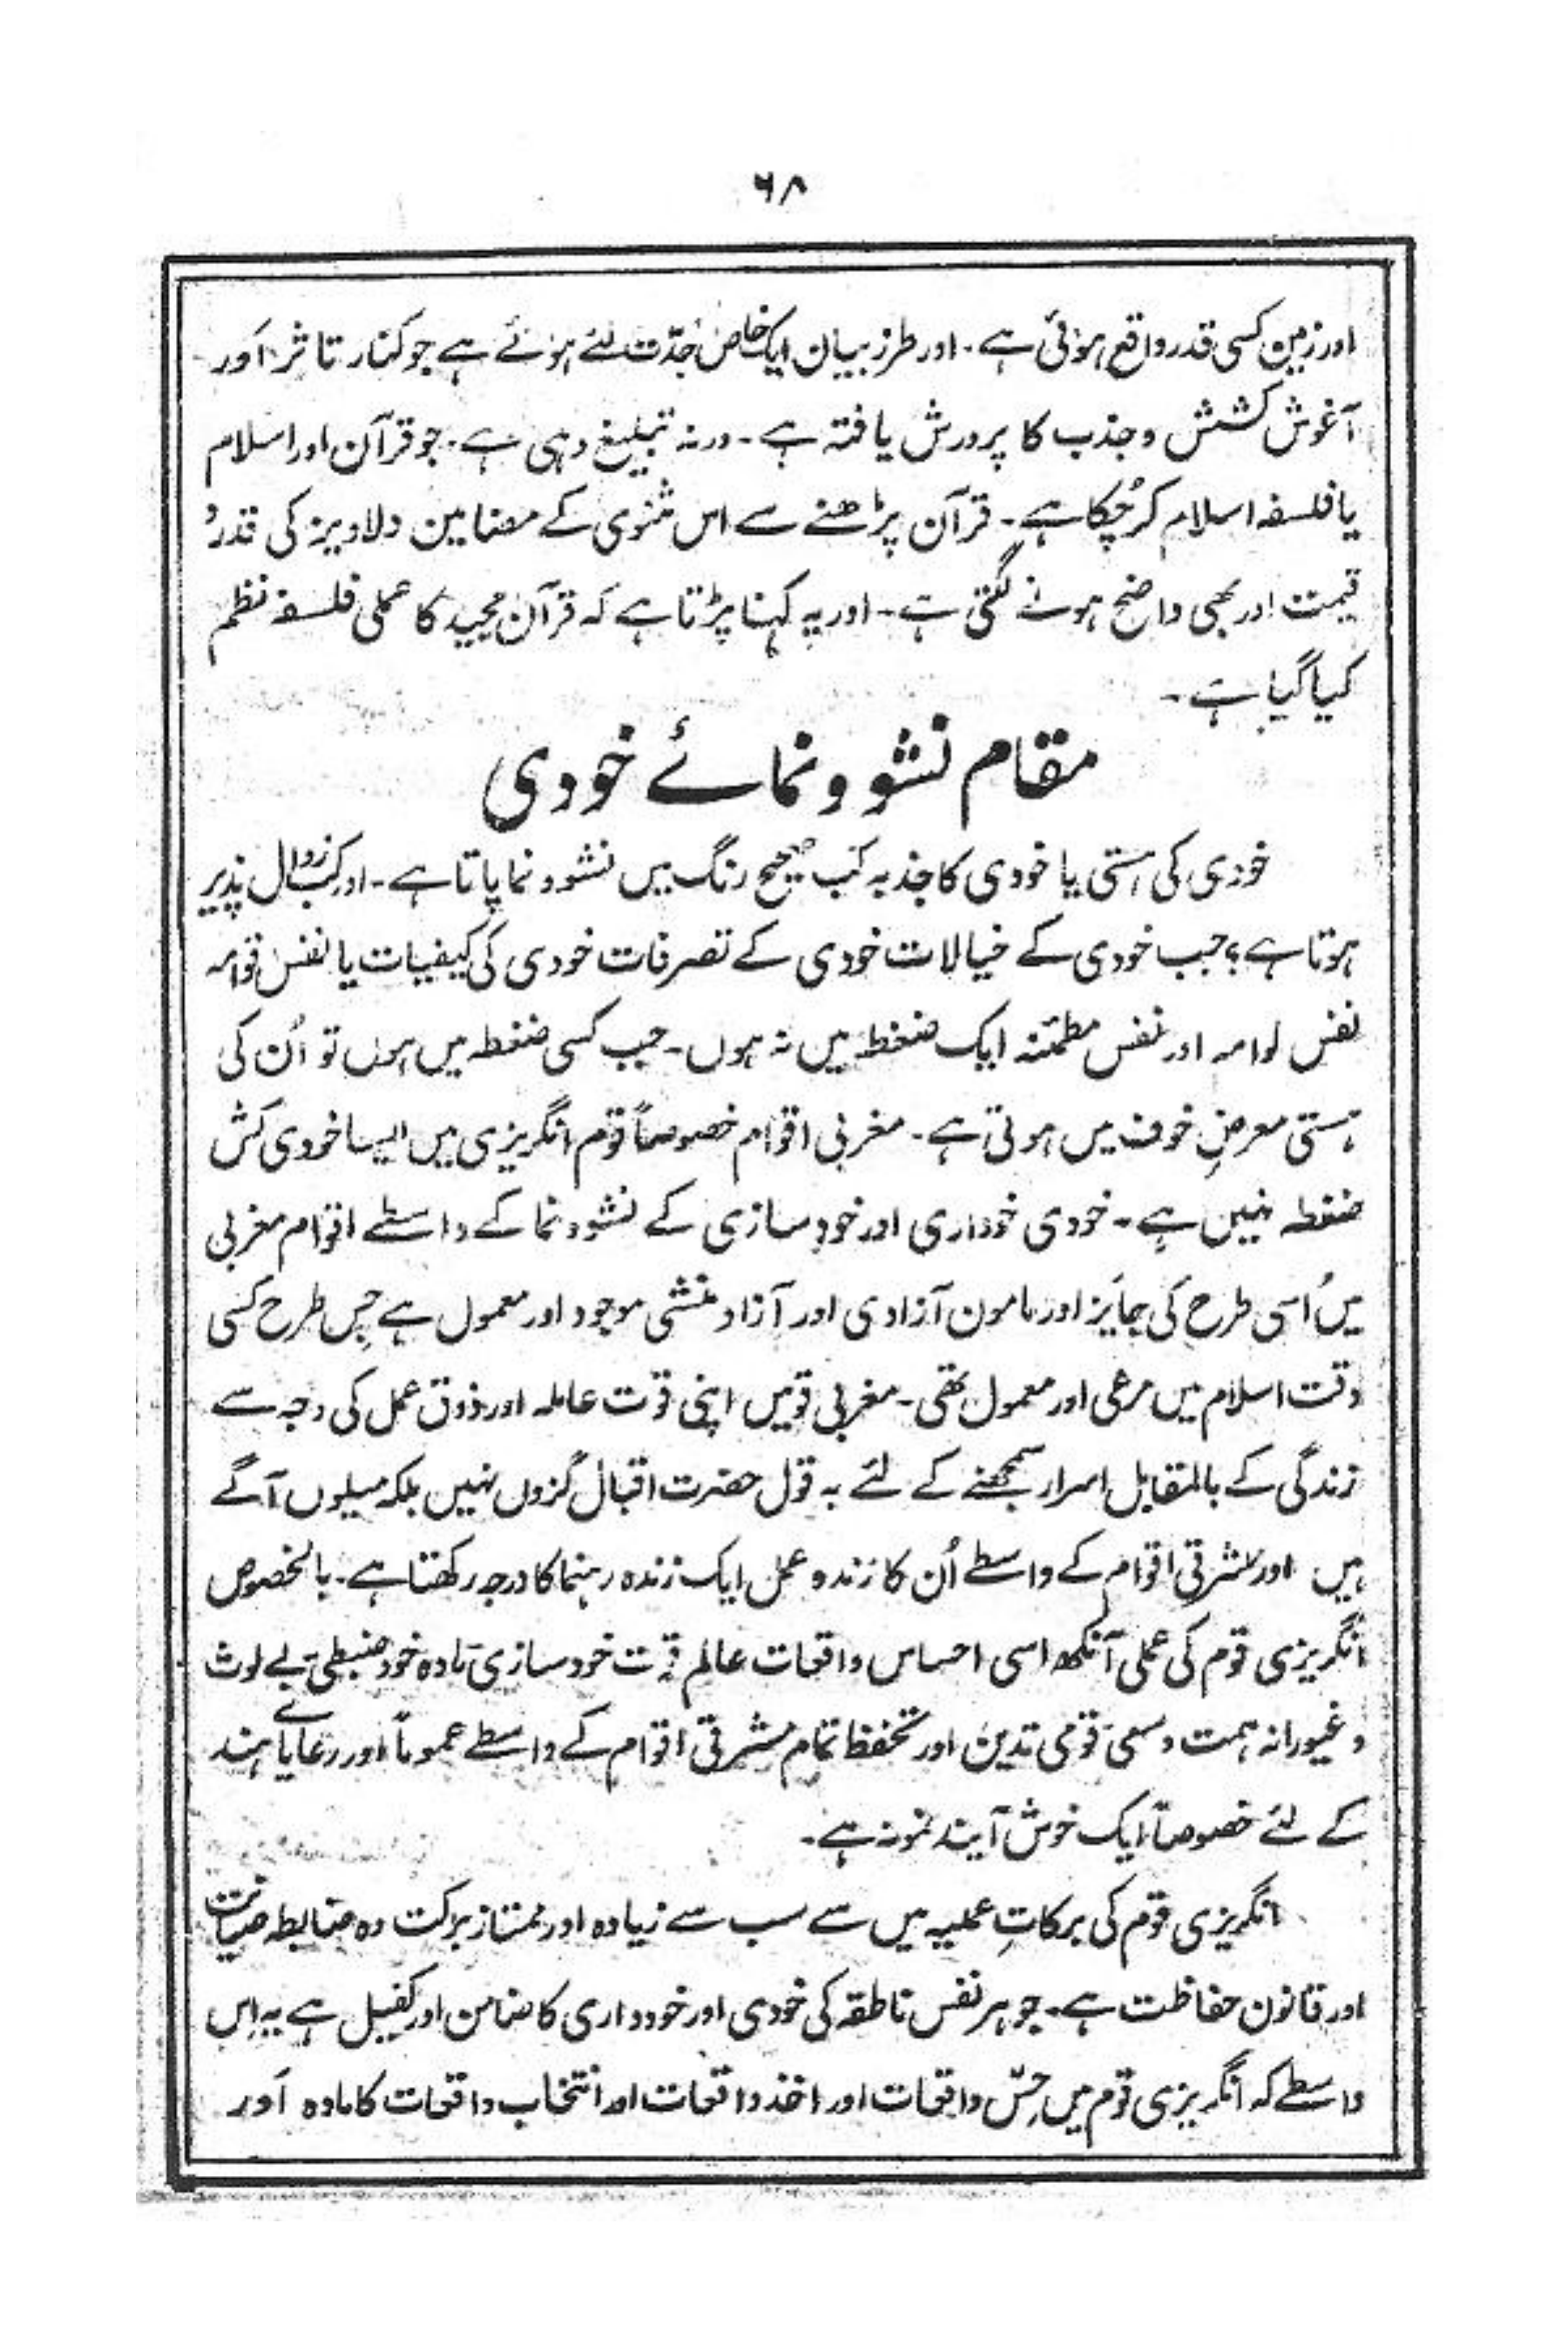 ۶۸
اور زمین کسی قدر واقع ہوئی ہے۔ اور طرز بیان ایک خاص جدّت لئے ہوئے ہے جو کنار تاثر اَور
آغوش کشش و جذب کا پرورش یافتہ ہے۔ ورنہ تبلیغ وہی ہے۔ جو قرآن اور اسلام
یا فلسفہ اسلام کر چُکا ہے۔ قرآن پڑھنے سے اس مثنوی کے مضامین دلاویز کی قدر و
قیمت اور بھی واضح ہونے لگتی ہے۔ اور یہ کہنا پڑتا ہے کہ قرآن مجید کا عملی فلسفہ نظم
کیا گیا ہے۔
مقام نشو و نمائے خودی
خودی کی ہستی یا خودی کا جذبہ کب صحیح رنگ میں نشو و نما پاتا ہے۔ اور کب زوال پذیر
ہوتا ہے؟ جب خودی کے خیالات خودی کے تصرفات خودی کی کیفیات یا نفس قوامہ
نفس لوامہ اور نفس مطمئنہ ایک ضغطہ میں نہ ہوں۔ جب کسی ضغطہ میں ہوں تو اُن کی
ہستی معرضِ خوف میں ہوتی ہے۔ مغربی اقوام خصوصاً قوم انگریزی میں ایسا خودی کش
ضغطہ نہیں ہے۔ خودی خودداری اور خود سازی کے نشو و نما کے واسطے اقوام مغربی
میں اُسی طرح کی جایز اور مامون آزادی اور آزاد منشی موجود اور معمول ہے جس طرح کسی
وقت اسلام میں مرعی اور معمول تھی۔ مغربی قومیں اپنی قوت عاملہ اور ذوق عمل کی وجہ سے
زندگی کے بالمقابل اسرار سمجھنے کے لئے بہ قول حضرت اقبال گزوں نہیں بلکہ میلوں آگے
ہیں اور مشرقی اقوام کے واسطے اُن کا زندہ عمل ایک زندہ رہنما کا درجہ رکھتا ہے۔ بالخصوص
انگریزی قوم کی عملی آنکھ اسی احساس واقعات عالم قوت خود سازی مادہ خود ضبطی بے لوث
و غیورانہ ہمت و سعی قومی تدین اور تحفظ تمام مشرقی اقوام کے واسطے عموماً اور رعایائے ہند
کے لئے خصوصاً ایک خوش آیند نمونہ ہے۔
انگریزی قوم کی برکاتِ عملیہ میں سے سب سے زیادہ اور ممتاز برکت وہ ضابطہ صیانت
اور قانون حفاظت ہے۔ جو ہر نفس ناطقہ کی خودی اور خودداری کا ضامن اور کفیل ہے یہ اِس
واسطے کہ انگریزی قوم میں حِسّ واقعات اور اخذ واقعات اور انتخاب واقعات کا مادہ اَور